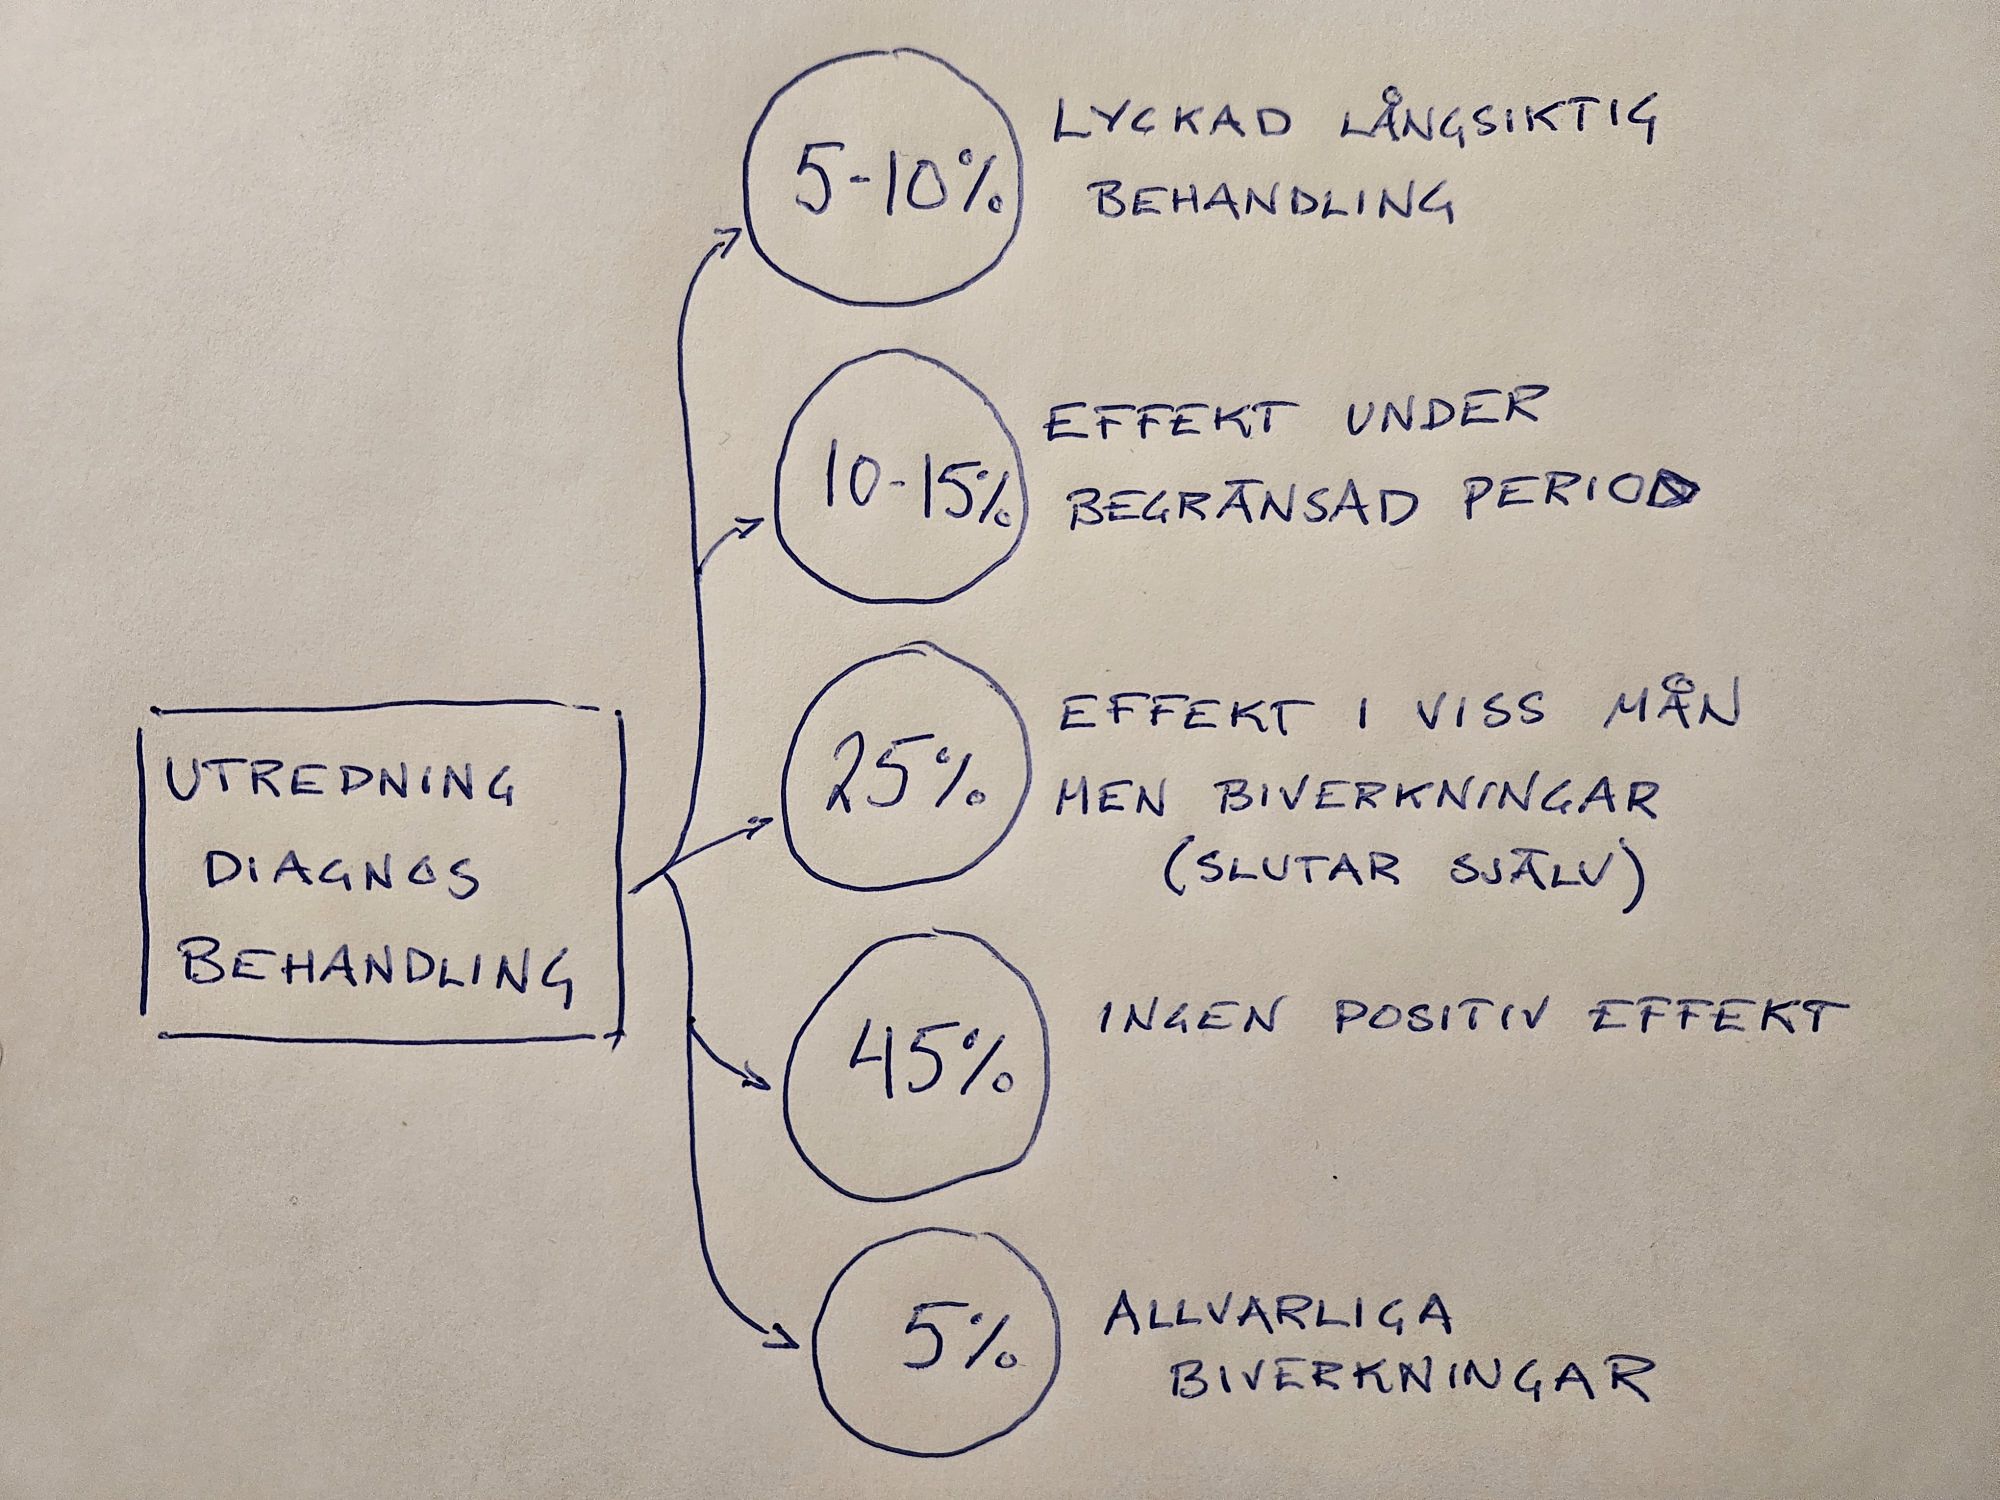 UTREDNING
DIAGNOS
BEHANDLING
5-10%
LYCKAD LÅNGSIKTIG
BEHANDLING
10-15%
EFFEKT UNDER
BEGRÄNSAD PERIOD
25%
EFFEKT I VISS MÅN
MEN BIVERKNINGAR
(SLUTAR SJÄLV)
45%
INGEN POSITIV EFFEKT
5%
ALLVARLIGA
BIVERKNINGAR